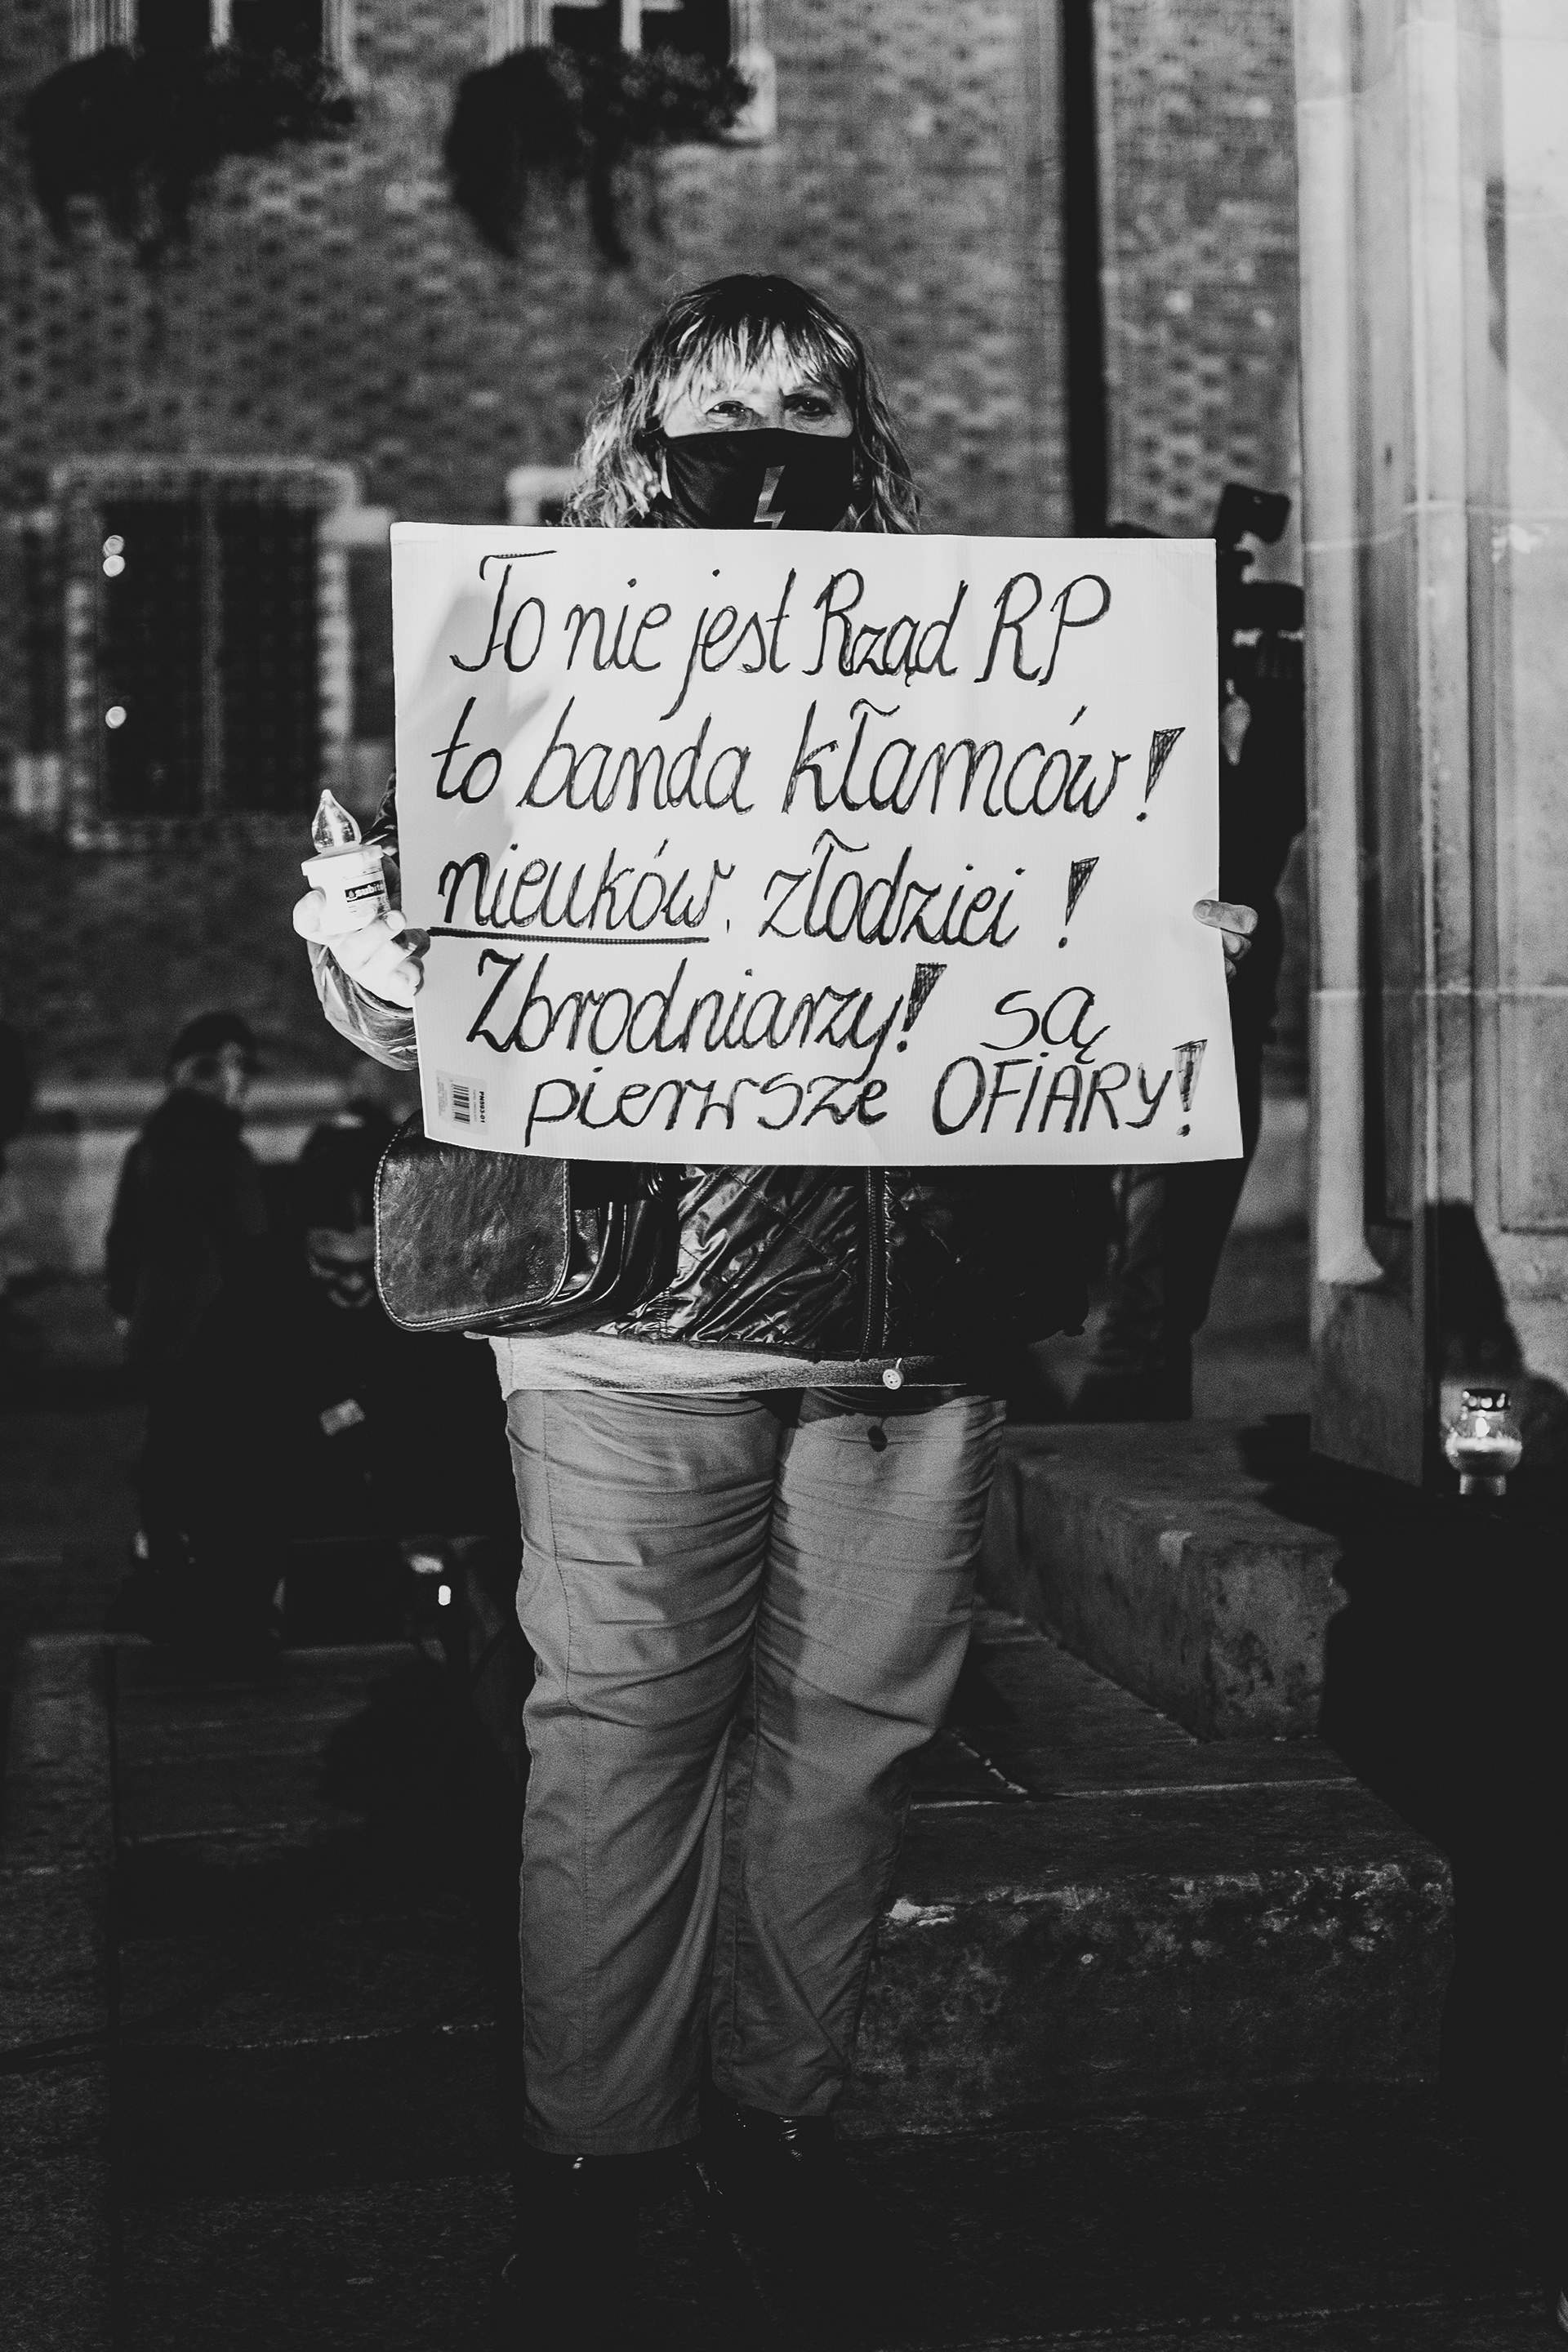 To nie jest Rząd RP
to banda kłamców!
nieuków, złodziei!
Zbrodniarzy! są
pierwsze OFiARY!